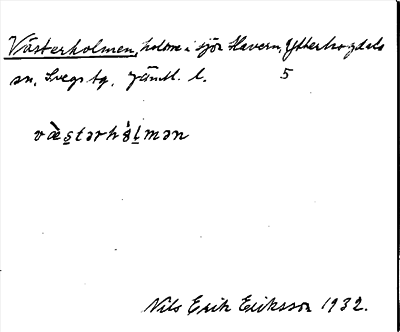 Västerholmen, holme i sjön Havern, Ytterhogdals
sn, Svegs tg, Jämtl. l. 5
væ̀s̠tərhòl̠mən
Nils Erik Eriksson 1932.